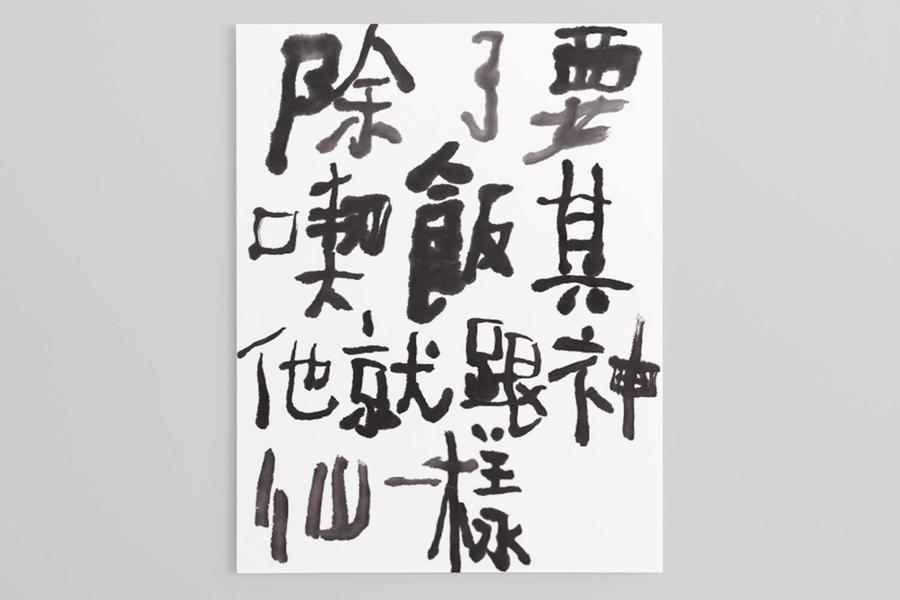 除了要
喫飯其
他就跟神
仙一樣